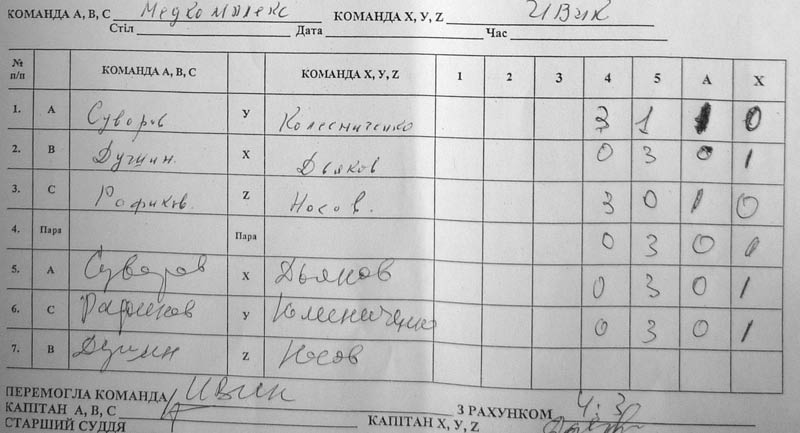 КОМАНДА А, В, С Медкомплекс КОМАНДА Х, У, Z ИВиК
Стіл Дата Час
№ п/п КОМАНДА А, В, С КОМАНДА Х, У, Z 1 2 3 4 5 А Х
1. А Суворов У Колесниченко 3 1 1 0
2. В Душин. Х Дьяков 0 3 0 1
3. С Рафиков. Z Носов. 3 0 1 0
4. Пара Пара 0 3 0 1
5. А Суворов Х Дьяков 0 3 0 1
6. С Рафиков У Колесниченко 0 3 0 1
7. В Душин Z Носов
ПЕРЕМОГЛА КОМАНДА ИВиК З РАХУНКОМ 4:3
КАПІТАН А, В, С КАПІТАН Х, У, Z
СТАРШИЙ СУДДЯ